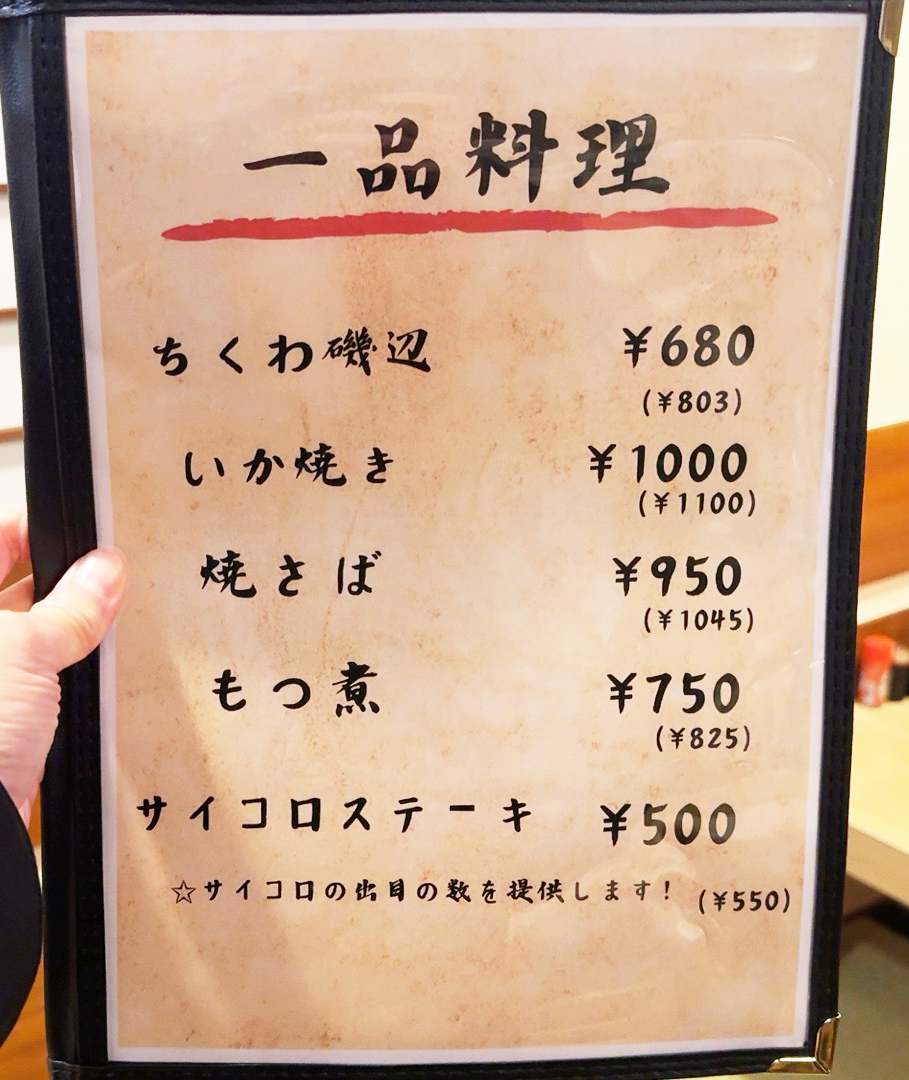 一品料理
ちくわ磯辺 ¥680
(¥803)
いか焼き ¥1000
(¥1100)
焼さば ¥950
(¥1045)
もつ煮 ¥750
(¥825)
サイコロステーキ ¥500
☆サイコロの出目の数を提供します! (¥550)